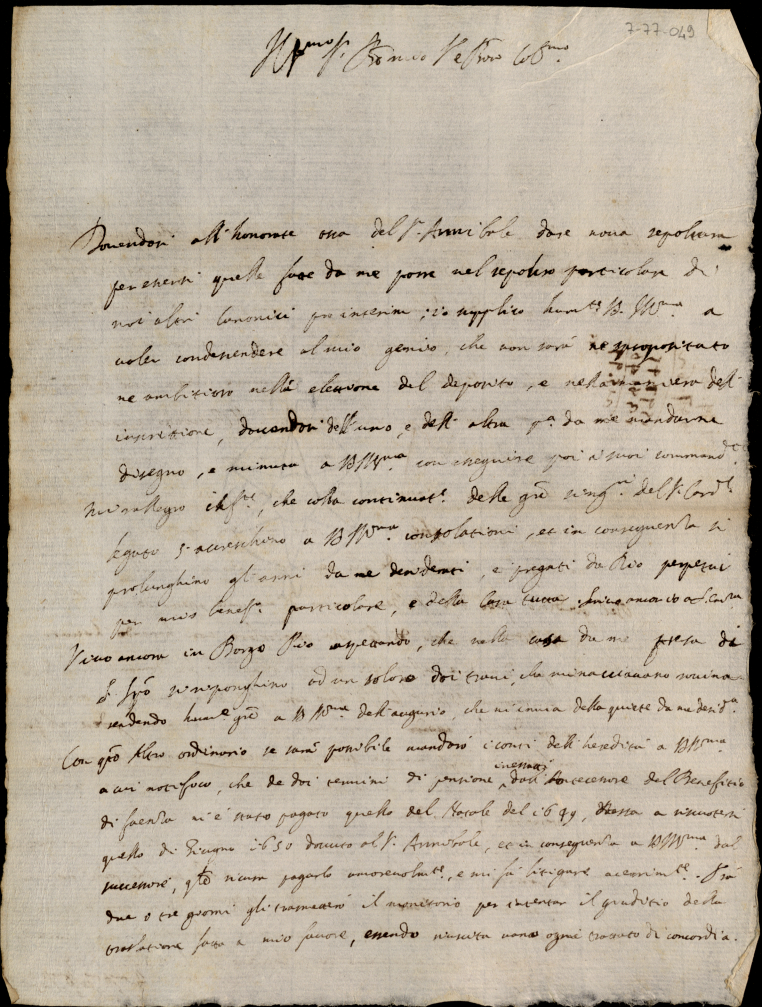 7-77-049
Ill.mo S.r P.ron mio e P.ron Col.mo
Dovendosi all'honorate ossa del S.r Annibale dare nova sepoltura
per essersi quelle fatte da me porre nel sepolcro particolare di
noi altri Canonici pro interim; io supplico hum.te V.S. Ill.ma a
voler condescendere al mio genio, che non sarà ne spropositato
ne ambitioso nella elettione del deposito, e nella maniera dell'
inscrittione, dovendosi dell'uno, e dell'altra p.a da me mandarne
disegno, e minuta a V.S. Ill.ma con eseguire poi i suoi command.ti
Mi rallegro, che colla continuat.e delle gratie del S.r Card.le
Legato s'accreschino a V.S. Ill.ma consolationi, et in conseguenza si
prolunghino gli anni da me desiderati, e pregati da Dio perpetui
per mio benef.o particolare, e della Casa tutta.
Vivo ancora in Borgo Pio aspettando, che nella casa da me presa di
S. Sp.o si riponghino ad un solaro doi travi, che minacciavano rovina
rendendo hum.e gratie a V.S. Ill.ma dell'augurio, che mi invia della quiete da me desid.a
Con q.sto altro ordinario se sarà possibile mandarò i conti dell'heredità a V.S. Ill.ma
a cui notifico, che de doi termini di pensione dall'Antecessore del Benefitio
di Faenza m'è stato pagato quello del Natale del 1649, resta a riscotersi
quello di Giugno 1650 dovuto al S.r Annibale, et in conseguenza a V.S. Ill.ma dal
successore, q.le ricusa pagarlo amorevolm.te, e mi fa litigare acerrim.te. Frà
due o tre giorni gli trasmetterò il monitorio per intentar il giuditio della
traslatione fatta a mio favore, essendo riuscito vano ogni trattato di concordia.